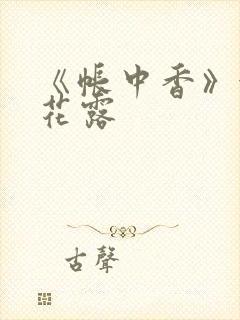 《帳中香》
花露
古聲